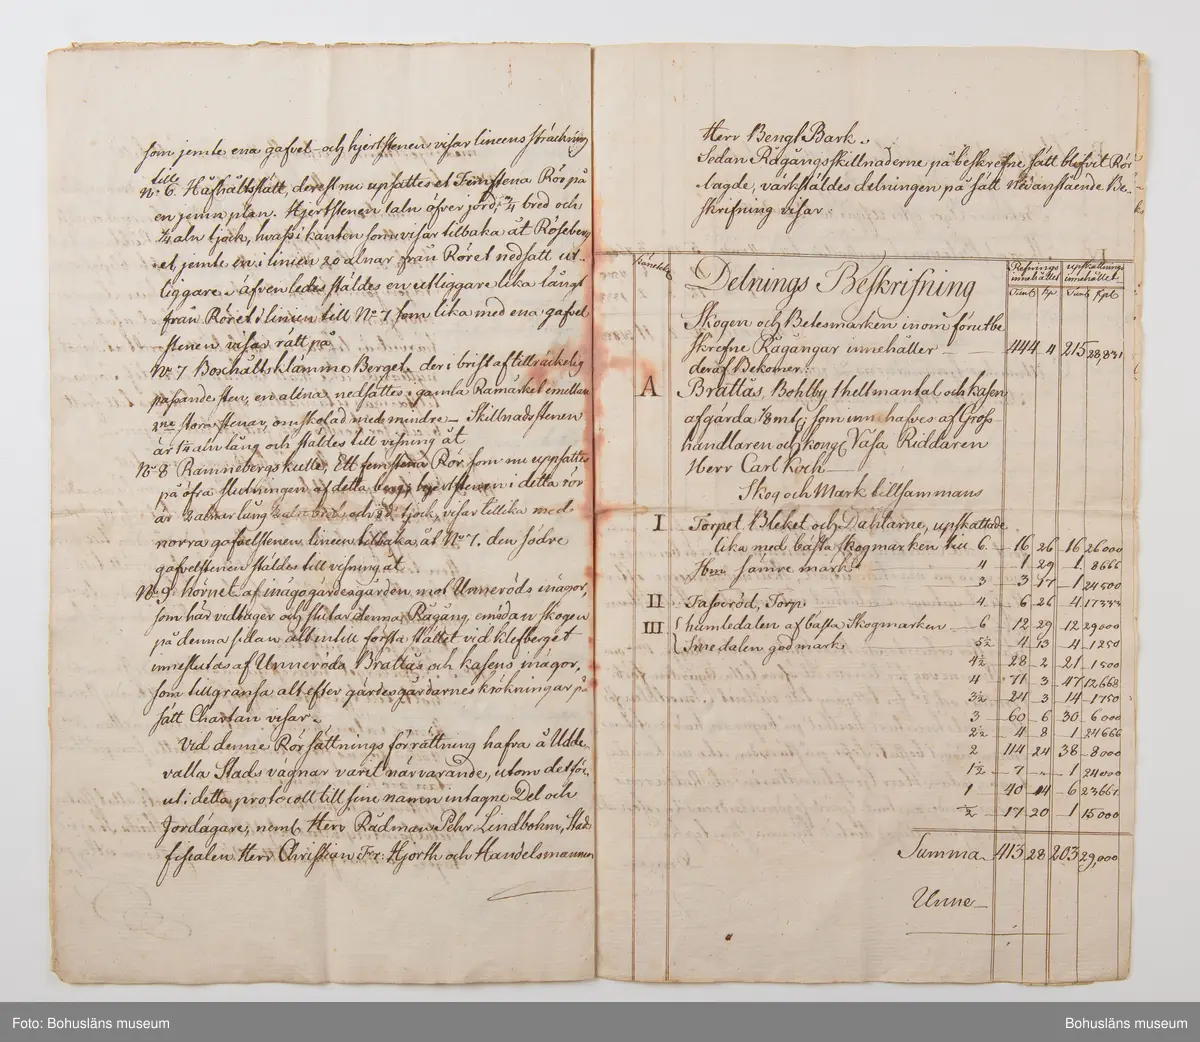 som jemte ena gafvel- och hjertstenen visar lineens sträckning
till
No 6. Hafhältslätt, derest nu upsattes et Femstena Rör på
en jemn plan. Hjertstenen 1 aln öfver jord, 3/4 bred och
1/4 aln tjock, hvass i kanten som visar tilbaka åt Röseberg
et jemte en i linien 20 alnar från Röret nedsatt ut-
liggare. äfvenledes stäldes en utliggare lika långt
från Röret i linien till No 7 som lika med ena gafvel
stenen visas rätt på
No 7 Boshältsklämme Berget. der i brist af tillräckelig
passande sten, en alena nedsattes i gamla Råmärket emellan
2ne stora stenar, omskolad med mindre - Skillnadsstenen
är 1/4 aln lång och stäldes till visning åt
No 8 Ramnebergs kulle, Ett femstena Rör som nu uppsattes
på öfra slutningen af detta berg, hjertstenen i detta rör
är 2 alnar lång och tjock, visar tillika med
norra gafvelstenen lineen tilbaka åt No 7. den södre
gafvelstenen stäldes till visning åt
No 9. hörnet af inägogärdesgården mot Unneröds inägor,
som här vidtager och slutar denna Rågång, emedan skogen
på denna sidan alt intill första stället vid klefberget
inneslutas af Unneröds Brattås och kasens inägor,
som tillgränsa alt efter gärdesgårdarnes krökningar på
sätt Chartan visar.
Vid denne Rörsättnings förrättning hafva å Udde-
valla Stads vägnar varit närvarande, utom det för-
ut i detta protocoll till sine namn intagne Del och
Jordägare, neml. Herr Rådman Pehr Lindbohm, Stads
fiscalen Herr Christian Fr: Hjorth och Handelsmannen
Herr Bengt Bark.
Sedan Rågångsskillnaderne på beskrefne sätt blifvit Rör-
lagde, värkstäldes delningen på sätt nedanstående Be-
skrifning visar.
Delnings Beskrifning
Refnings innehållet
upskattnings innehållet
Tunl Kp Tunl Kpl
Skogen och Betesmarken inom förutbe
skrefne Rågångar innehåller - 444 4 215 28,831
deraf Bekomer:
A Brattås, Bohlby 1 helt mantal och kasen
afgärda 1/8 mtl; som innehafves af Gross-
handlaren och kongl Vasa Riddaren
Herr Carl Koch
Skog och Mark tillsammans
I Torpet Bleket och Dahlarne, upskattade
lika med bästa skogmarken till 6. - 16 26 - 16 26000
Hm sämre mark 4 - 1 29 - 1. 8666
3 - 3 17 - 1 24500
II Tasseröd, Torp 4. - 6 26 - 4. 17333
III humledalen af bästa Skogmarken - 6 - 12 29 - 12 29000
Innedalen god mark 5 1/2 - 4 13 - 4 - 1250
4 1/2 - 28 - 2 - 21 - 1500
4 - 71 - 3 - 47 12668
3 1/2 - 24 - 3 - 14 - 1750
3 - 60 - 6 - 30 - 6000
2 1/2 - 4 - 8 - 1 24666
2 - 114 - 24 - 38 - 8000
1 1/2 - 7 - „ - 1 24000
1 - 40 - 14 - 6 23661
1/2 - 17 - 20 - 1 15000
Summa. 413 28 203 29,000
Unne-
Foto: Bohusläns museum
Bohusläns museum